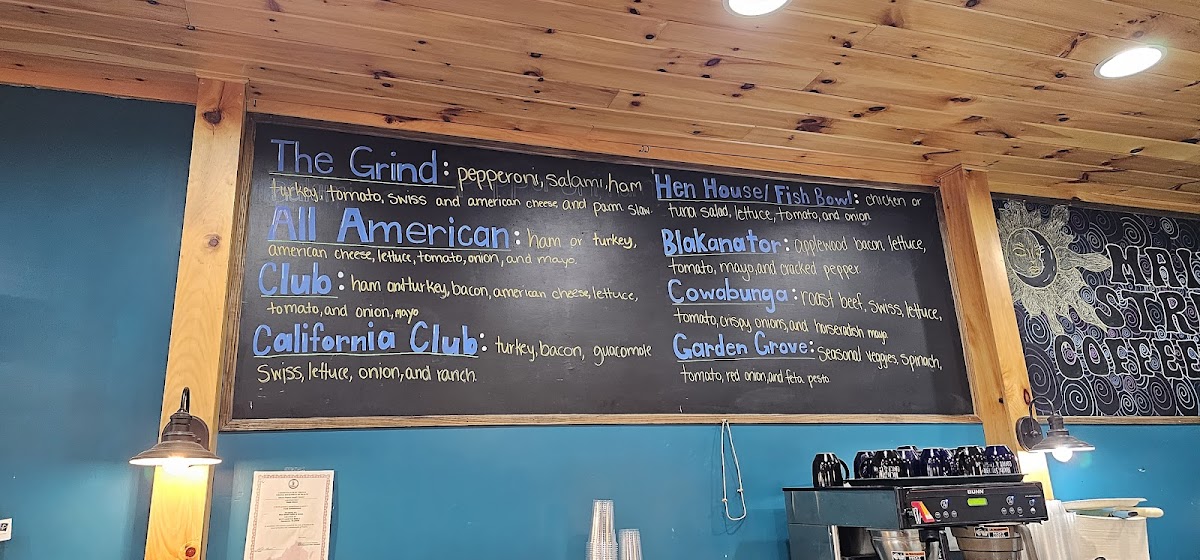 The Grind: pepperoni, salami, ham
turkey, tomato, swiss and american cheese and parm slaw.
All American: ham or turkey,
american cheese, lettuce, tomato, onion, and mayo.
Club: ham and turkey, bacon, american cheese, lettuce,
tomato, and onion, mayo
California Club: turkey, bacon, guacamole
Swiss, lettuce, onion, and ranch.
Hen House/ Fish Bowl: chicken or
tuna salad, lettuce, tomato, and onion
Blakanator: applewood bacon, lettuce,
tomato, mayo, and cracked pepper
Cowabunga: roast beef, swiss, lettuce,
tomato, crispy onions, and horseradish mayo
Garden Grove: seasonal veggies, spinach,
tomato, red onion, and feta pesto
BUNN